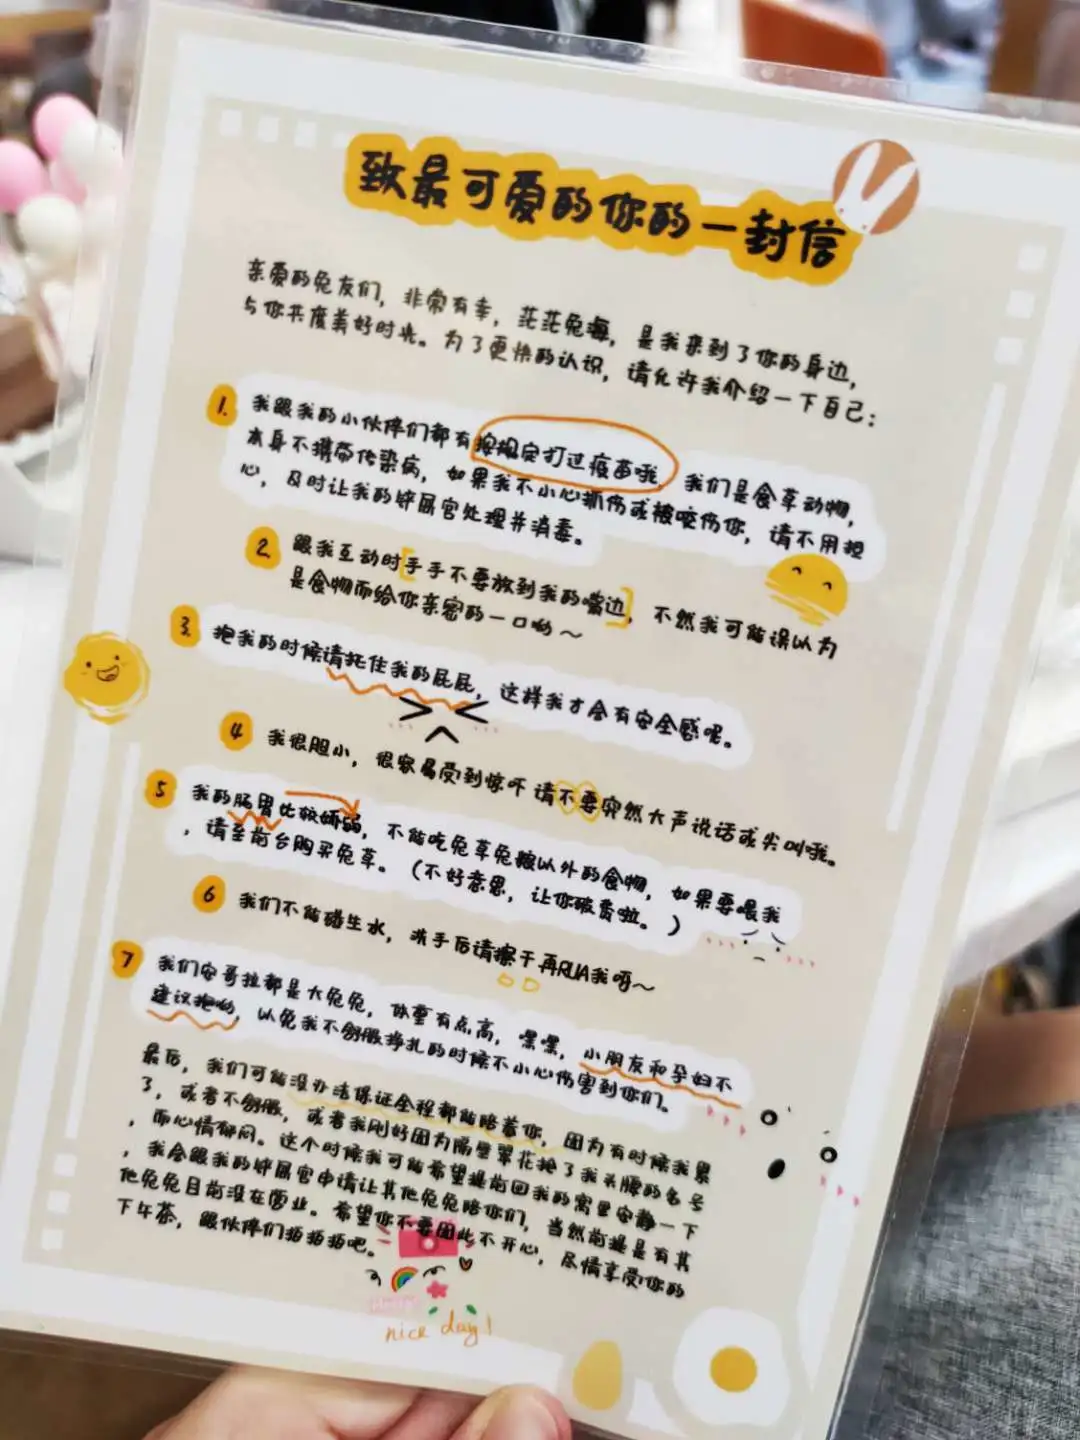 致最可爱的你的一封信
亲爱的兔友们，非常有幸，茫茫兔海，是我来到了你的身边，
与你共度美好时光。为了更快的认识，请允许我介绍一下自己：
1. 我跟我的小伙伴们都有按规定打过疫苗哦，我们是食草动物，
本身不携带传染病，如果我不小心抓伤或被咬伤你，请不用担
心，及时让我的铲屎官处理并消毒。
2. 跟我互动时手手不要放到我的嘴边，不然我可能误以为
是食物而给你亲密的一口哟～
3. 抱我的时候请托住我的屁屁，这样我才会有安全感呢。
4 我很胆小，很容易受到惊吓请不要突然大声说话或尖叫哦。
5 我的肠胃比较娇弱，不能吃兔草兔粮以外的食物，如果要喂我
，请至前台购买兔草。（不好意思，让你破费啦。）
6 我们不能碰生水，洗手后请擦干再RUA我呀～
7 我们安哥拉都是大兔兔，体重有点高，嘿嘿，小朋友和孕妇不
建议抱哟，以免我不舒服挣扎的时候不小心伤害到你们。
最后，我们可能没办法保证全程都能陪着你，因为有时候我累
了，或者不舒服，或者我刚好因为隔壁翠花抢了我头牌的名号
，而心情郁闷。这个时候我可能希望提前回我的窝里安静一下
，我会跟我的铲屎官申请让其他兔兔陪你们，当然前提是有其
他兔兔目前没在营业。希望你不要因此不开心，尽情享受你的
下午茶，跟伙伴们拍拍拍吧。
nice day!